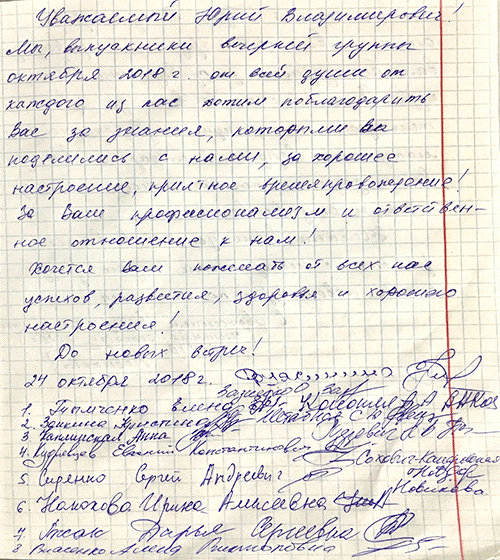 Уважаемый Юрий Владимирович!
Мы, выпускники вечерней группы
октября 2018 г. от всей души от
каждого из нас хотим поблагодарить
Вас за знания, которыми вы
поделились с нами, за хорошее
настроение, приятное времяпровождение!
За Ваш профессионализм и ответствен-
ное отношение к нам!
Хочется вам пожелать от всех нас
успехов, развития, здоровья и хорошего
настроения!
До новых встреч!
24 октября 2018г.
1. Тимченко Елена
2. Кристина
3. Анна
4. Кудрявцев Евгений Константинович
5 Сиренко Сергей Андреевич
Новикова
6. Ирина Алексеевна
7 Дарья Сергеевна
8 Власенко Алена Викторовна